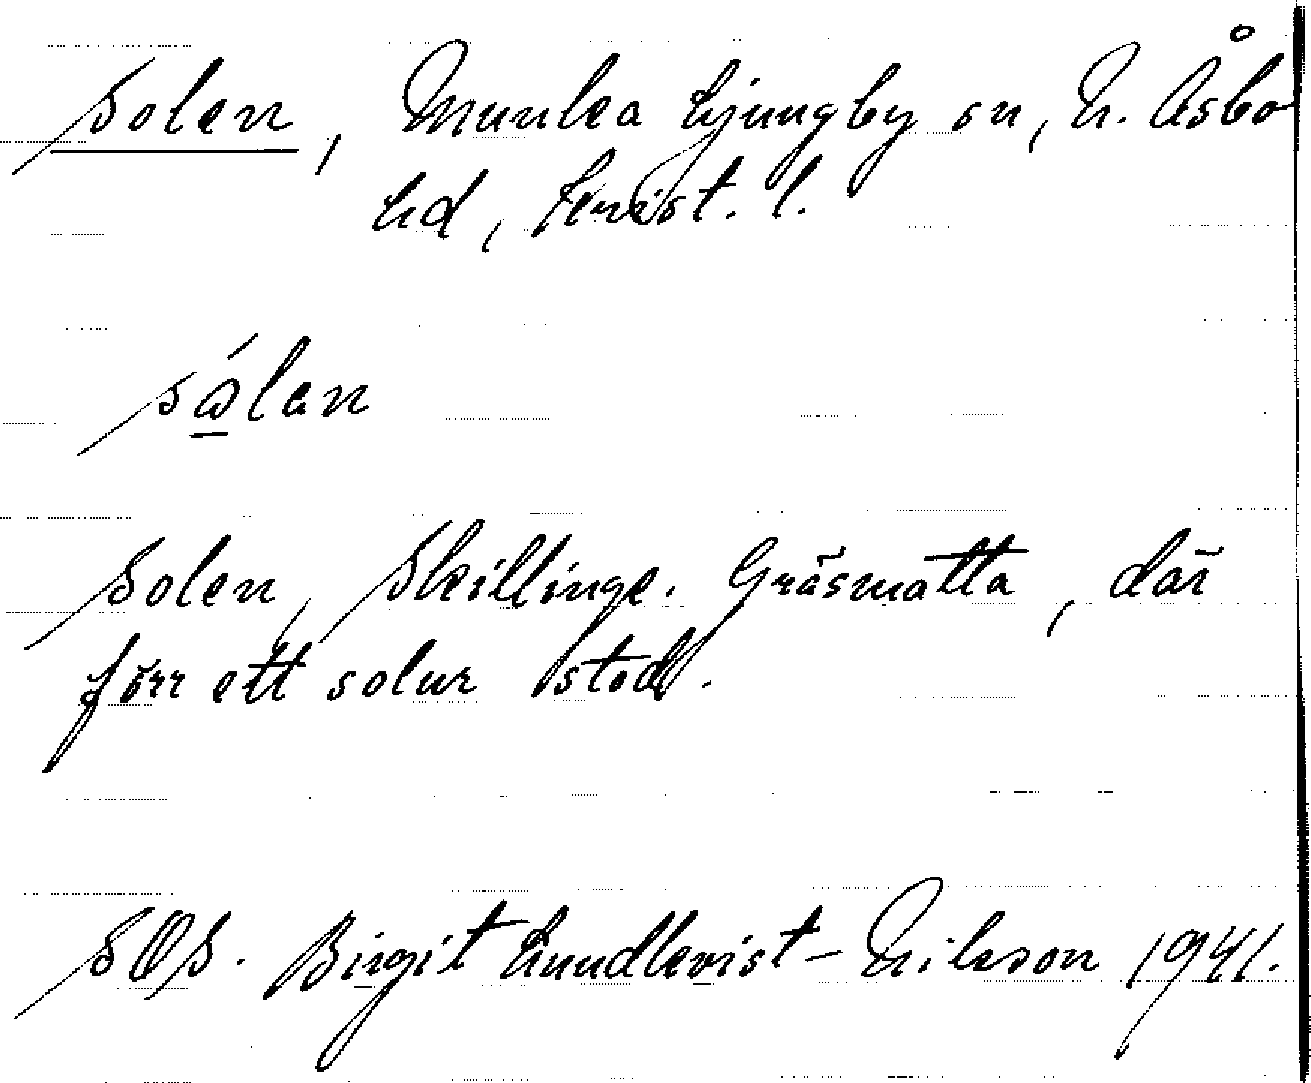 Solen, Munka Ljungby sn, N. Åsbo
hd, Krist. l.
sólan
Solen, Skillinge. Gräsmatta, där
förr ett solur stod.
SOS. Birgit Lundkvist-Nilsson 1941.